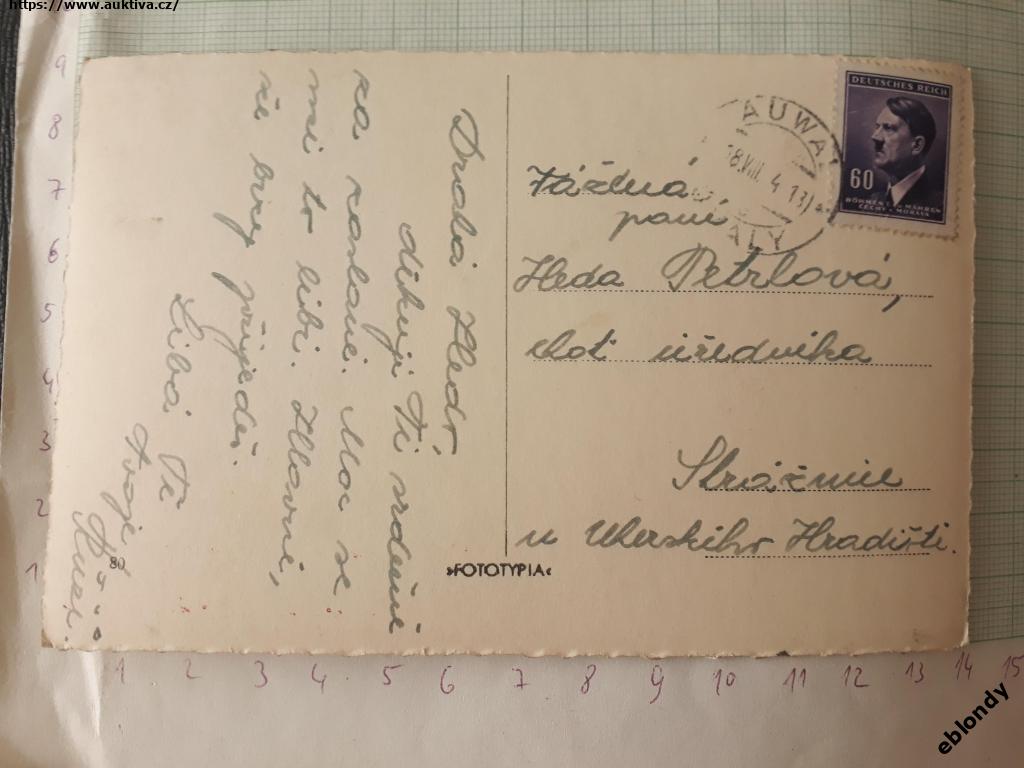 https://www.auktiva.cz/
Drahá Hedo,
děkuji Ti srdečně
za zaslané. Moc se
mi to líbí. Hlavně,
že brzy přijedeš.
Líbá Tě
Tvoje
80
»FOTOTYPIA«
AUWAL
18.VIII. 4 - 13
ALY
DEUTSCHES REICH
60
BÖHMEN U. MÄHREN
ČECHY A MORAVA
Vážená
paní
Heda Petrlová,
choť úředníka
Strážnice
u Uherského Hradiště.
9
8
7
6
5
4
3
2
1
1 2 3 4 5 6 7 8 9 10 11 12 13 14 15
eblondy